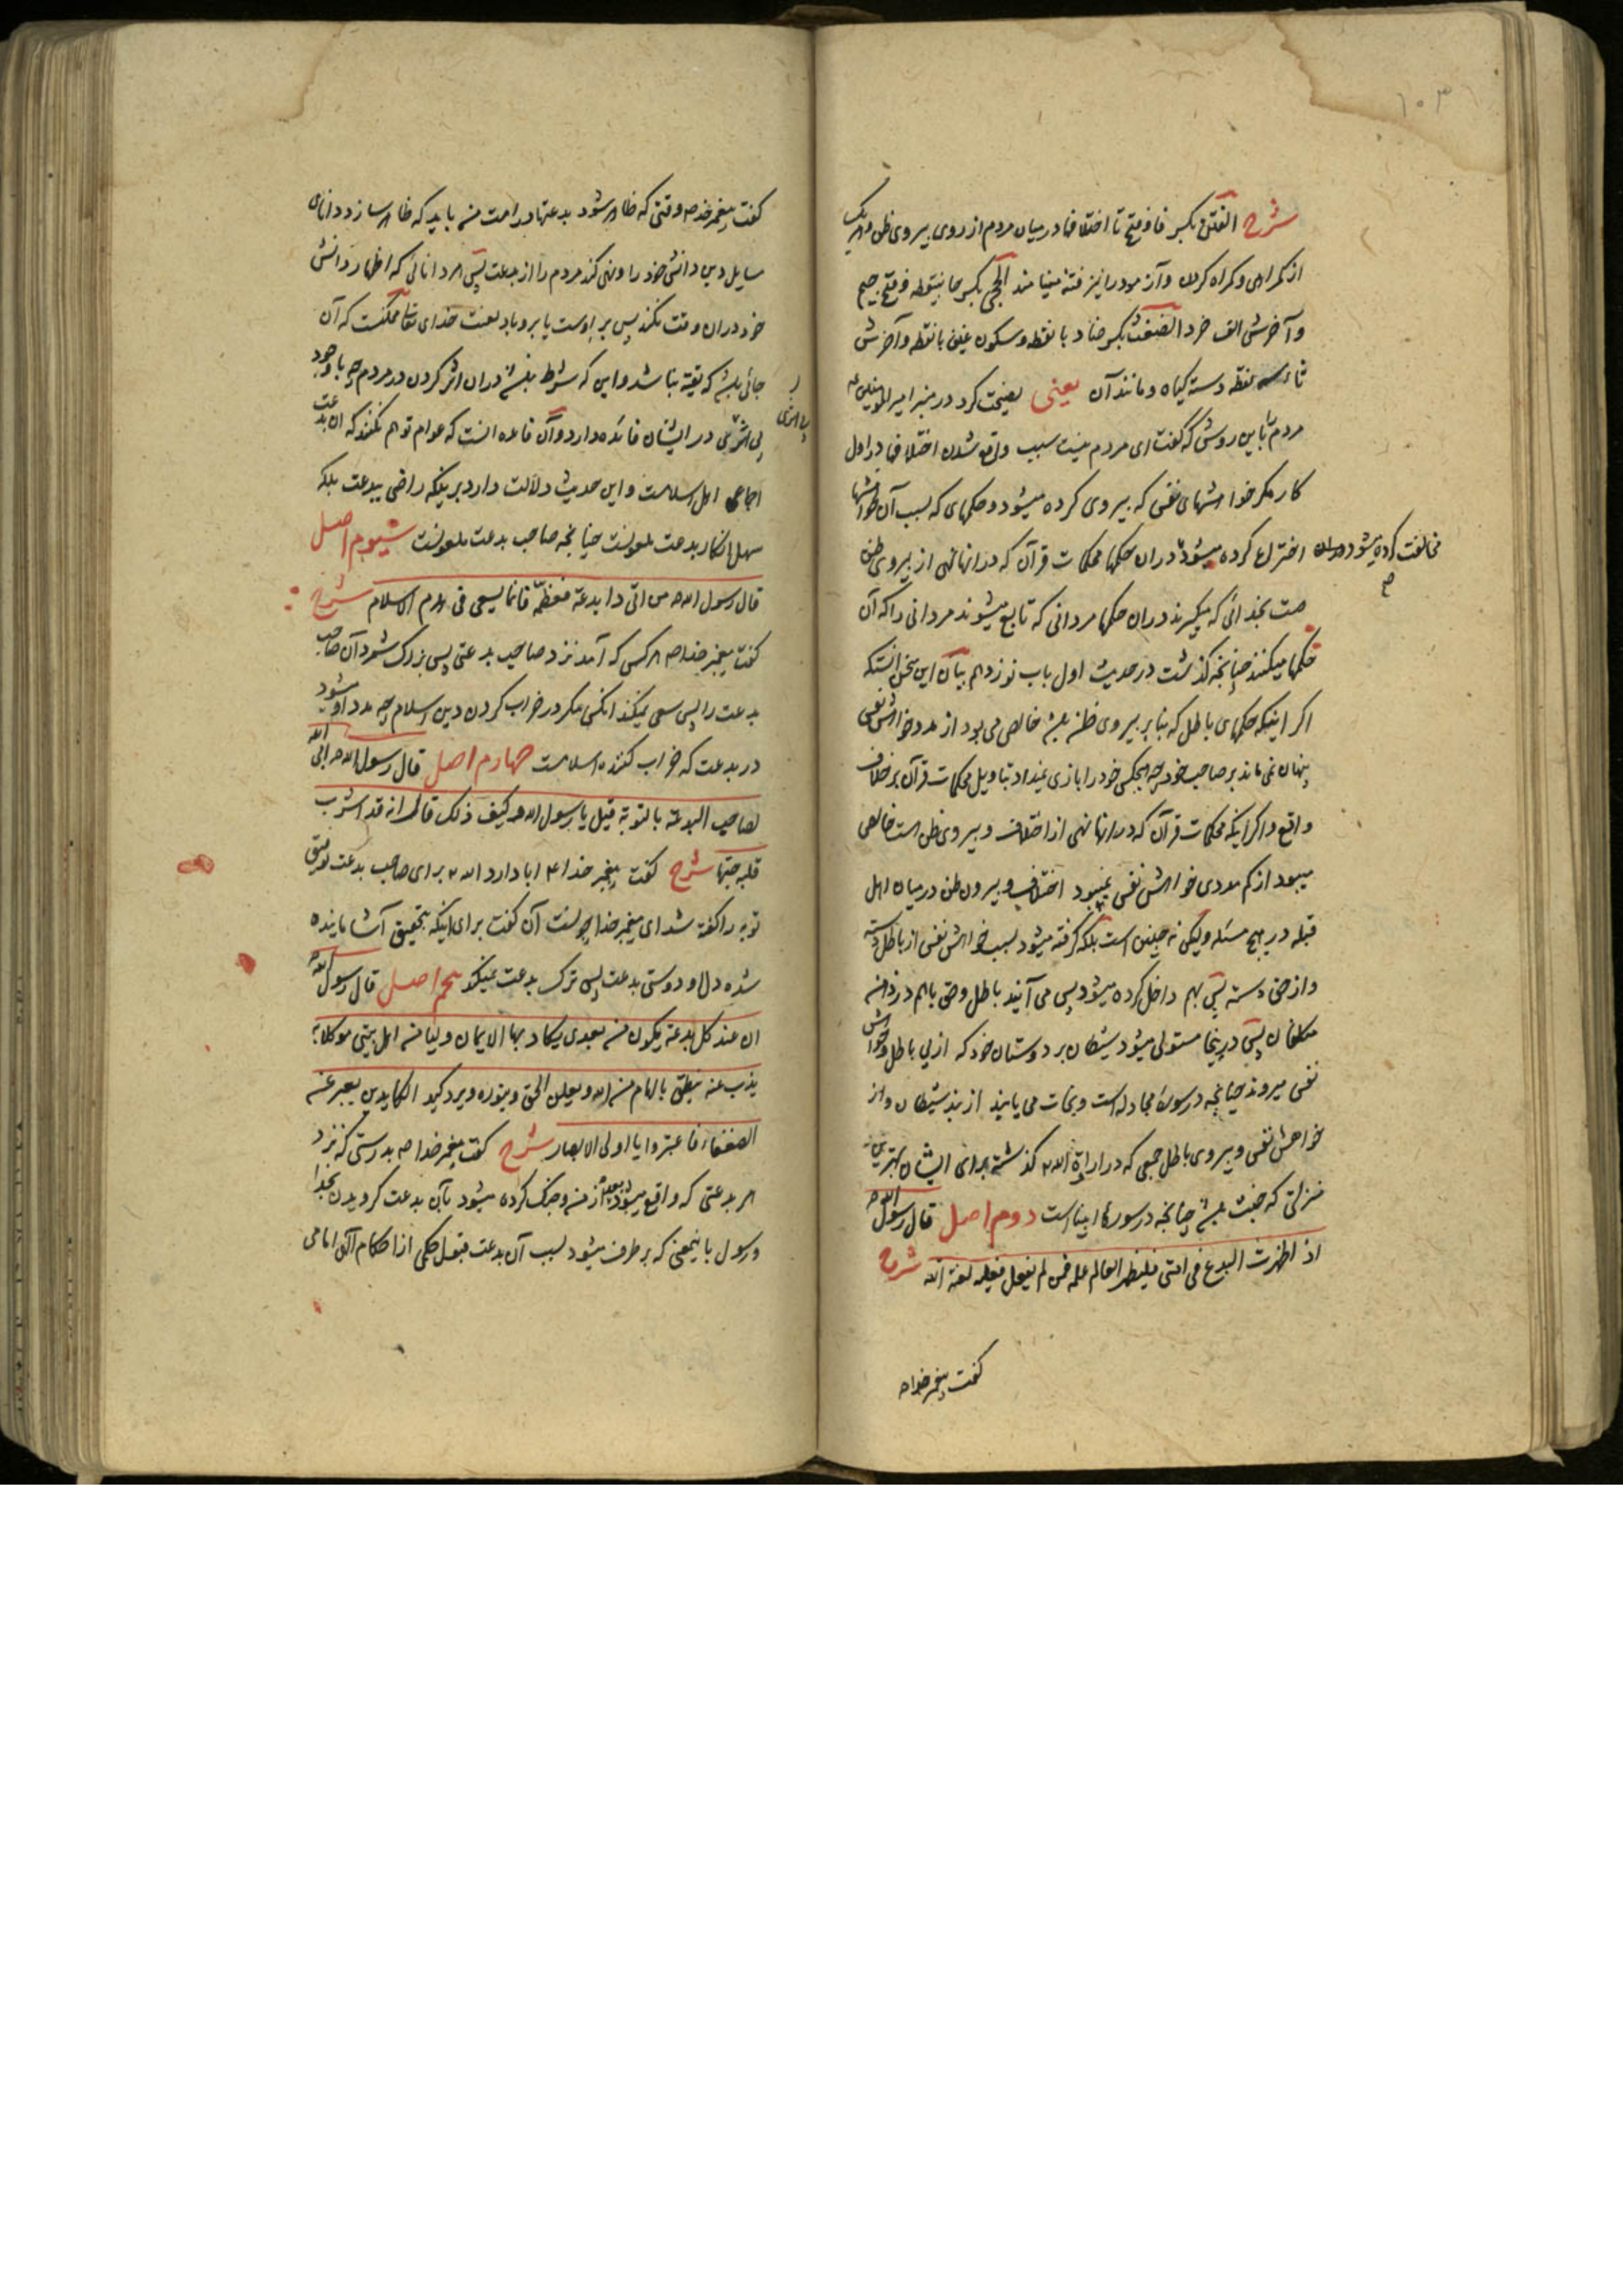 ١٠٣
شرح الفتن بکسر فا و فتح تا اختلافها در میان مردم از روی پیروی ظن و هریک
از کمراهی و کمراه کردن و آزمودن را نیز فتنه مینامند الحجی بکسر حا بینقطه و فتح جیم
و آخرش الف خرد الضغث بکسر ضاد با نقطه و سکون غین با نقطه و آخرش
ثاء سه نقطه دسته کیاه و مانند آن یعنی نصیحت کرد در منبر امیر المومنین ع
مردم را باین روش که کفت ای مردم نیست سبب واقع شدن اختلافها در اول
کار مکر خواهشهای نفس که پیروی کرده میشود و حکمهای که بسبب آن خواهشها
اختراع کرده میشود در ان حکمها محکمات قرآن که در انها نهی از پیروی ظن
مخالفت کرده میشود در ان
صح
هست بخدائی که میکیرند در ان حکمها مردانی که تابع میشوند مردانی را که آن
حکمها میکنند چنانچه کذشت در حدیث اول باب نوزدهم بیان این سخن انستکه
اکر اینکه حکمهای باطل که بنا بر پیروی ظن باشد خالص می بود از مدد خواهش نفس
پنهان نمی ماند بر صاحب خرد چه هیچکس خود را بازی نمیداد بتاویل محکمات قرآن بر خلاف
واقع و اکر اینکه محکمات قرآن که در انها نهی از اختلاف و پیروی ظن است خالص
میبود از کم مددی خواهش نفس نمیبود اختلاف و پیروی ظن در میان اهل
قبله در هیچ مسئله و لیکن نه چنین است بلکه کرفته میشود بسبب خواهش نفس از باطل دسته
و از حق دسته پس بهم داخل کرده میشود پس می آیند باطل و حق باهم در زمانه
مکلفان پس در اینجا مستولی میشود شیطان بر دوستان خود که از پی باطل و خواهش
نفس میروند چنانچه در سوره مجادله است و نجات می یابند از بند شیطان و از
خواهش نفس و پیروی باطل جمعی که در اراده الله کذشته برای ایشان بهترین
منزلتی که جنت باشد چنانچه در سوره انبیا است دوم اصل قال رسول الله ص
اذا ظهرت البدع فی امتی فلیظهر العالم علمه فمن لم یفعل فعلیه لعنة الله شرح
کفت پیغمبر خدا ص
کفت پیغمبر خدا ص وقتی که ظاهر شود بدعتها در امت من باید که ظاهر سازد دانای
مسایل دین دانش خود را و نهی کند مردم را از بدعت پس هر دانائی که اظهار دانش
خود در ان وقت نکند پس بر اوست یا بر و باد لعنت خدای تعالی ممکنست که آن
جائی باشد که تقیه نباشد و این که شرط باشد در ان اثر کردن در مردم چه با وجود
بی اثری در ایشان فائده دارد و آن فائده انست که عوام توهم نکنند که ان بدعت
اجماعی اهل اسلامست و این حدیث دلالت دارد بر اینکه راضی ببدعت بلکه
سهل انکار بدعت ملعونست چنانچه صاحب بدعت ملعونست سیوم اصل
قال رسول الله ص من اتی ذا بدعة فعظمه فانما یسعی فی هدم الاسلام شرح
کفت پیغمبر خدا ص هر کس که آمد نزد صاحب بدعتی پس بزرک شمرد آن صاحب
بدعت را پس سعی نمیکند انکس مکر در خراب کردن دین اسلام چه مدد او میشود
در بدعت که خراب کننده اسلامست چهارم اصل قال رسول الله ص ابی الله
لصاحب البدعة بالتوبة قیل یا رسول الله و کیف ذلک قال انه قد اشرب
قلبه حبها شرح کفت پیغمبر خدا ص ابا دارد الله برای صاحب بدعت توفیق
توبه را کفته شد ای پیغمبر خدا چونست آن کفت برای اینکه بتحقیق آشامانیده
شده دل او دوستی بدعت پس ترک بدعت نمیکند پنجم اصل قال رسول الله ص
ان عند کل بدعة یکون من بعدی یکاد بها الایمان ولیا من اهل بیتی موکلا به
یذب عنه ینطق بالهام من الله و یعلن الحق و ینوره و یرد کید الکایدین یعبر عن
الضعفاء فاعتبروا یا اولی الابصار شرح کفت پیغمبر خدا ص بدرستی که نزد
هر بدعتی که واقع میشود بعد از من و جنک کرده میشود بآن بدعت کرویدن بخدا
و رسول باینمعنی که بر طرف میشود بسبب آن بدعت قبول حکمی از احکام الهی امامی